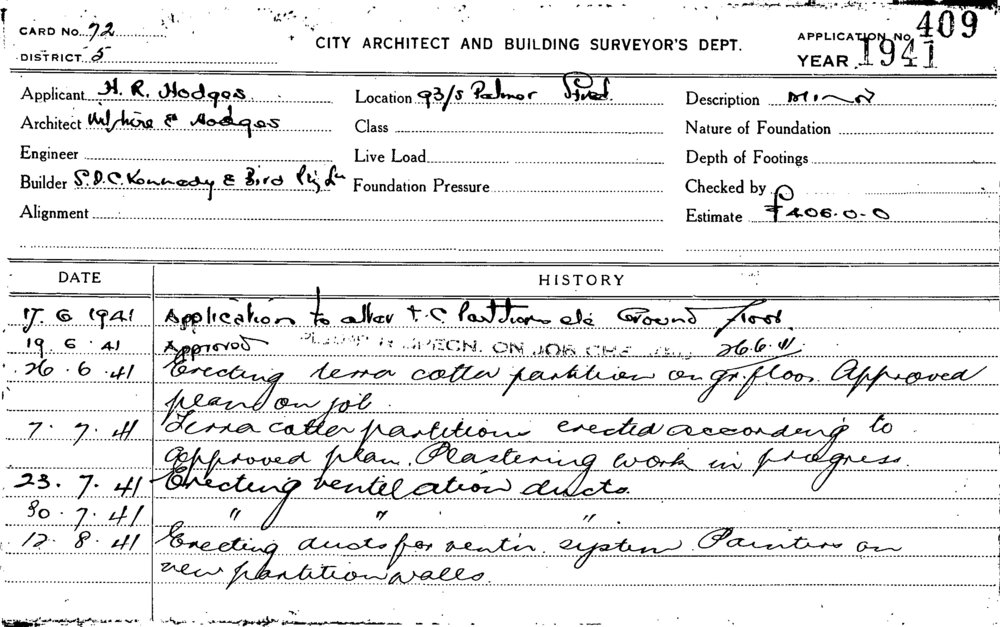 CARD No. 72
DISTRICT 5
CITY ARCHITECT AND BUILDING SURVEYOR'S DEPT.
APPLICATION No. 409
YEAR 1941
Applicant H. R. Hodges
Location 93/5 Palmer Street
Description Minor
Architect Wilshire & Hodges
Class
Nature of Foundation
Engineer
Live Load
Depth of Footings
Builder S.D.C. Kennedy & Bird Pty Ltd
Foundation Pressure
Checked by
Alignment
Estimate £406.0.0
DATE HISTORY
17 6 1941 Application to alter T.C. Partitions etc Ground Floor.
19 6 41 Approved PLAN & SPECN. ON JOB 26.6.41
26.6.41 Erecting terra cotta partition on gr. floor. Approved
plans on job.
7.7.41 Terra cotta partitions erected according to
approved plan. Plastering work in progress.
23.7.41 Erecting ventelation ducts.
30.7.41 " " "
12.8.41 Erecting ducts for ventn. system. Painters on
new partition walls.